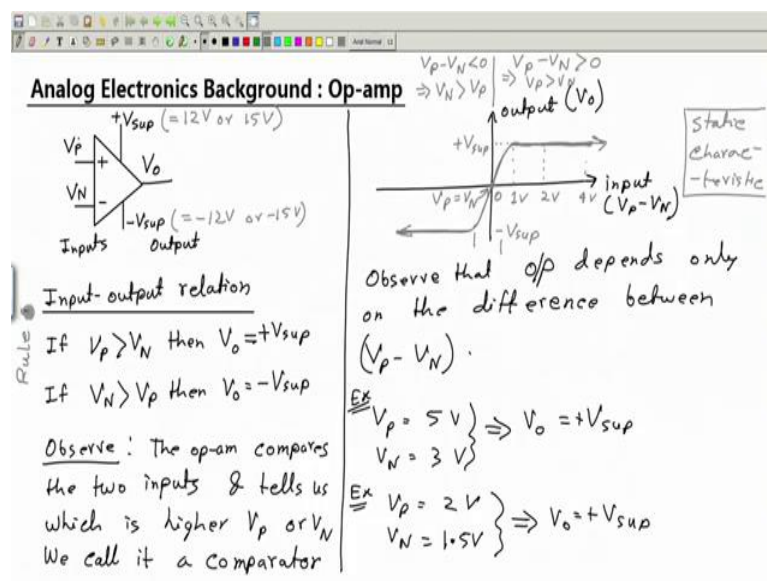 Analog Electronics Background : Op-amp
+Vsup (= 12V or 15V)
Vp
+
Vo
VN
-
-Vsup (= -12V or -15V)
Inputs
Output
Input-output relation
Rule
If Vp > VN then Vo = +Vsup
If VN > Vp then Vo = -Vsup
Observe : The op-am compares
the two inputs & tells us
which is higher Vp or VN
We call it a comparator
Vp-VN<0 | Vp-VN>0
⇒ VN>Vp | ⇒ Vp>VN
output (Vo)
+Vsup
Vp=VN
0 1V 2V 4V
input
(Vp-VN)
-Vsup
static
charac-
-teristic
Observe that o/p depends only
on the difference between
(Vp - VN) .
Ex
Vp = 5 V
VN = 3 V
⇒ Vo = +Vsup
Ex
Vp = 2 V
VN = 1.5V
⇒ Vo = +Vsup